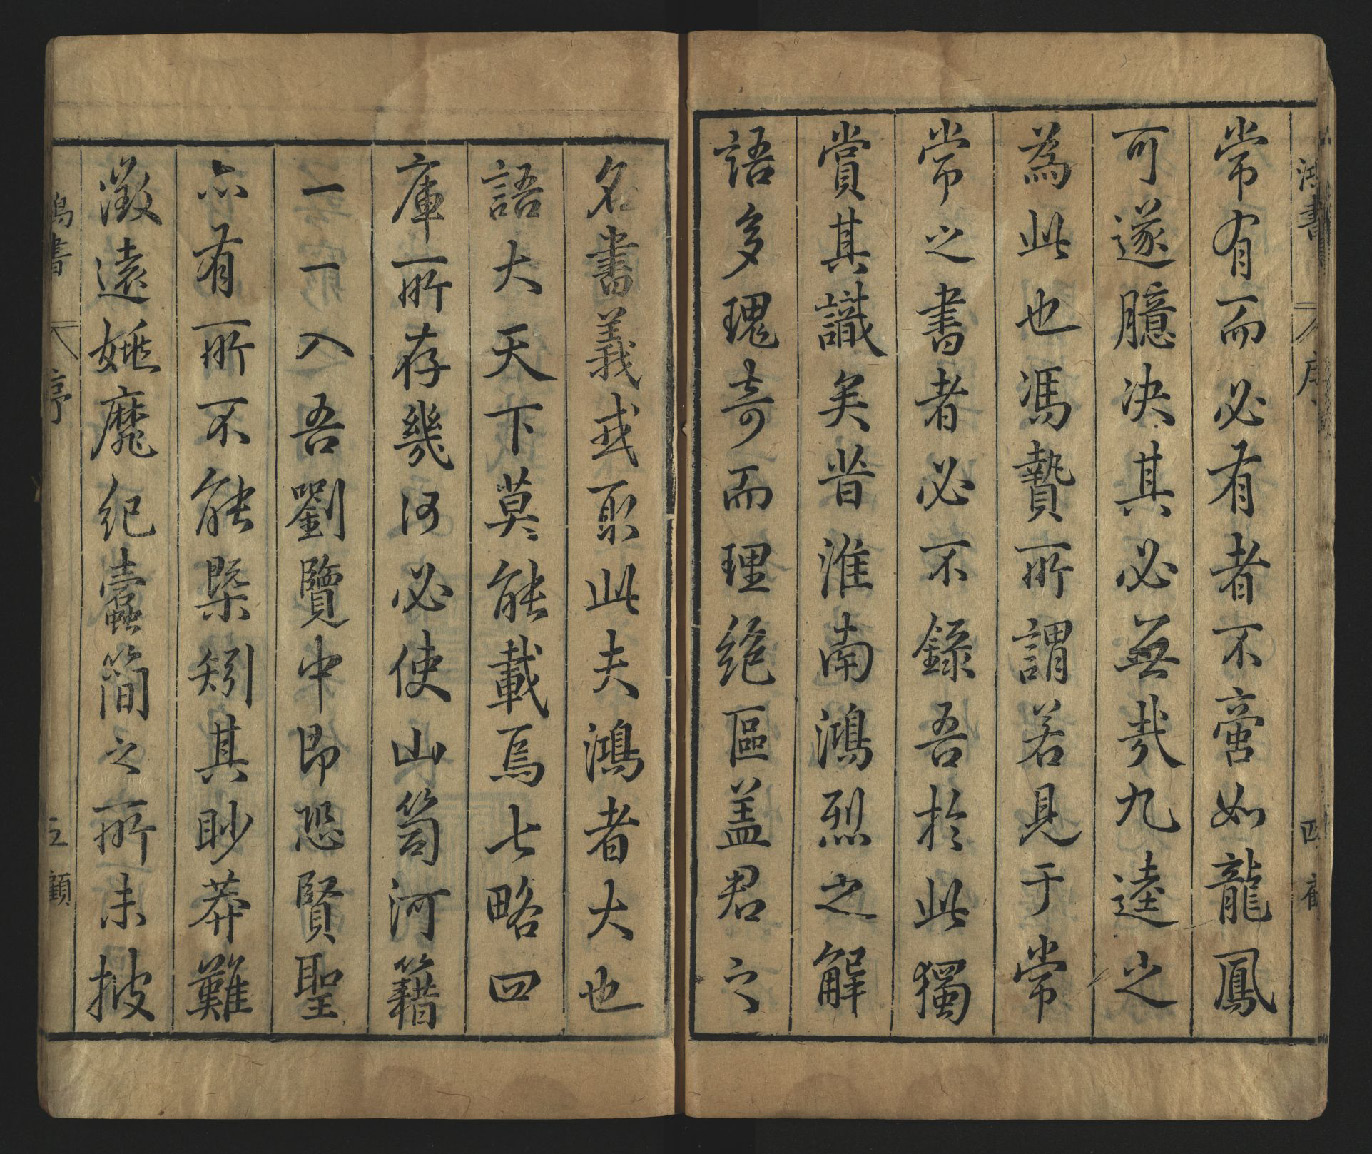 鴻書
序
四
常有而必有者不啻如龍鳳
可遂臆决其必無㢤九逵之
為此也馮贄所謂若見于常
常之書者必不録吾於此獨
賞其識矣昔淮南鴻烈之解
語多瑰竒而理絶區盖君之
名書義或取此夫鴻者大也
語大天下莫能載焉七略四
庫所存幾何必使山笥河籍
一一入吾劉覽中即恐賢聖
亦有所不能槩矧其眇莽難
徴遠姚靡紀蠹簡之所未披
鴻書
序
五
顧